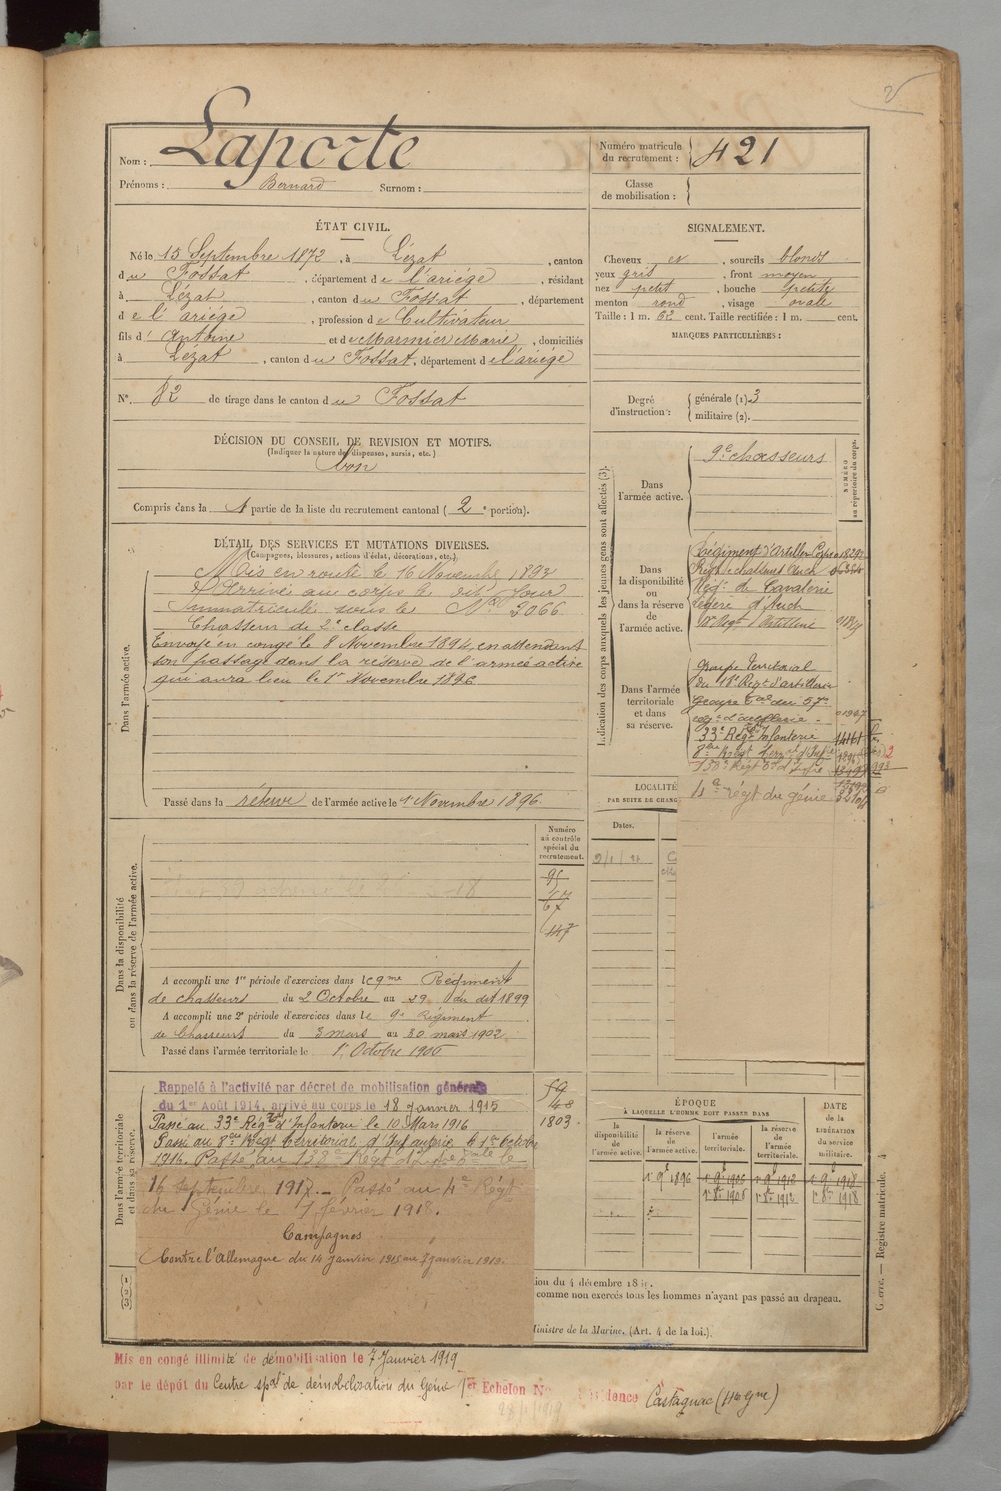 Nom : Laporte
Prénoms : Bernard Surnom :
Numéro matricule du recrutement : 421
Classe de mobilisation :
ÉTAT CIVIL.
Né le 15 Septembre 1872, à Lézat, canton
du Fossat, département de l'ariége, résidant
à Lézat, canton du Fossat, département
de l'ariége, profession de Cultivateur
fils d'Antoine et de Marmier Marie, domiciliés
à Lézat, canton du Fossat, département de l'ariége
N° 82 de tirage dans le canton du Fossat
SIGNALEMENT.
Cheveux et, sourcils blonds
yeux gris, front moyen
nez petit, bouche petite
menton rond, visage ovale
Taille : 1 m. 62 cent. Taille rectifiée : 1 m. cent.
MARQUES PARTICULIÈRES :
Degré d'instruction :
générale (1). 3
militaire (2).
DÉCISION DU CONSEIL DE REVISION ET MOTIFS.
(Indiquer la nature des dispenses, sursis, etc.)
bon
Compris dans la 1 partie de la liste du recrutement cantonal (2e portion).
DÉTAIL DES SERVICES ET MUTATIONS DIVERSES.
(Campagnes, blessures, actions d'éclat, décorations, etc.)
Dans l'armée active.
Mis en route le 16 Novembre 1893
Arrivé au corps le dit Jour
Immatriculé sous le N° 3066
Chasseur de 2e classe
Envoyé en congé le 8 Novembre 1894, en attendant
son passage dans la réserve de l'armée active
qui aura lieu le 1er Novembre 1896
Passé dans la réserve de l'armée active le 1 Novembre 1896.
Indication des corps auxquels les jeunes gens sont affectés (3).
NUMÉRO au répertoire du corps.
Dans l'armée active.
9e chasseurs
Dans la disponibilité ou dans la réserve de l'armée active.
Régiment d'Artillerie
Régt de chasseurs Auch
Régt de Cavalerie
légère d'Auch
Dans l'armée territoriale et dans sa réserve.
Groupe territorial
du 18e Régt d'artillerie
Groupe tal du 57e
33e Régt Infanterie
4e régt du génie
LOCALITÉ
PAR SUITE DE CHANG
Dates.
Dans la disponibilité ou dans la réserve de l'armée active.
Numéro au contrôle spécial du recrutement.
95
67
147
A accompli une 1re période d'exercices dans le 9me Régiment
de chasseurs du 2 Octobre au 29 du dit 1899
A accompli une 2e période d'exercices dans le 9e Régiment
de Chasseurs du 3 mars au 30 mars 1902
Passé dans l'armée territoriale le 1er Octobre 1906
Dans l'armée territoriale et dans sa réserve.
Rappelé à l'activité par décret de mobilisation générale
du 1er Août 1914, arrivé au corps le 18 janvier 1915
Passé au 33e Régt tal d'Infanterie le 10 Mars 1916
Passé au 8me Régt territorial d'Infanterie le 1er Octobre
1916. Passé au 138e Régt d'Inf terale le
16 septembre 1917. — Passé au 4e Régt
du Génie le 7 février 1918.
Campagnes
Contre l'Allemagne du 14 janvier 1915 au 7 janvier 1919.
59
48
1803
ÉPOQUE
À LAQUELLE L'HOMME DOIT PASSER DANS
DATE DE LA LIBÉRATION du service militaire.
la disponibilité de l'armée active.
la réserve de l'armée active.
l'armée territoriale.
la réserve de l'armée territoriale.
1er 9e 1896
1er 9e 1906
1er 9e 1912
1er 9e 1918
1er 8e 1906
1er 8e 1912
1er 8e 1918
comme non exercés tous les hommes n'ayant pas passé au drapeau.
Ministre de la Marine. (Art. 4 de la loi.)
Guerre. — Registre matricule. 4
Mis en congé illimité de démobilisation le 7 Janvier 1919
par le dépôt du Centre spal de démobilisation du Génie 1er Echelon N° Castagnac (Hte Gne)